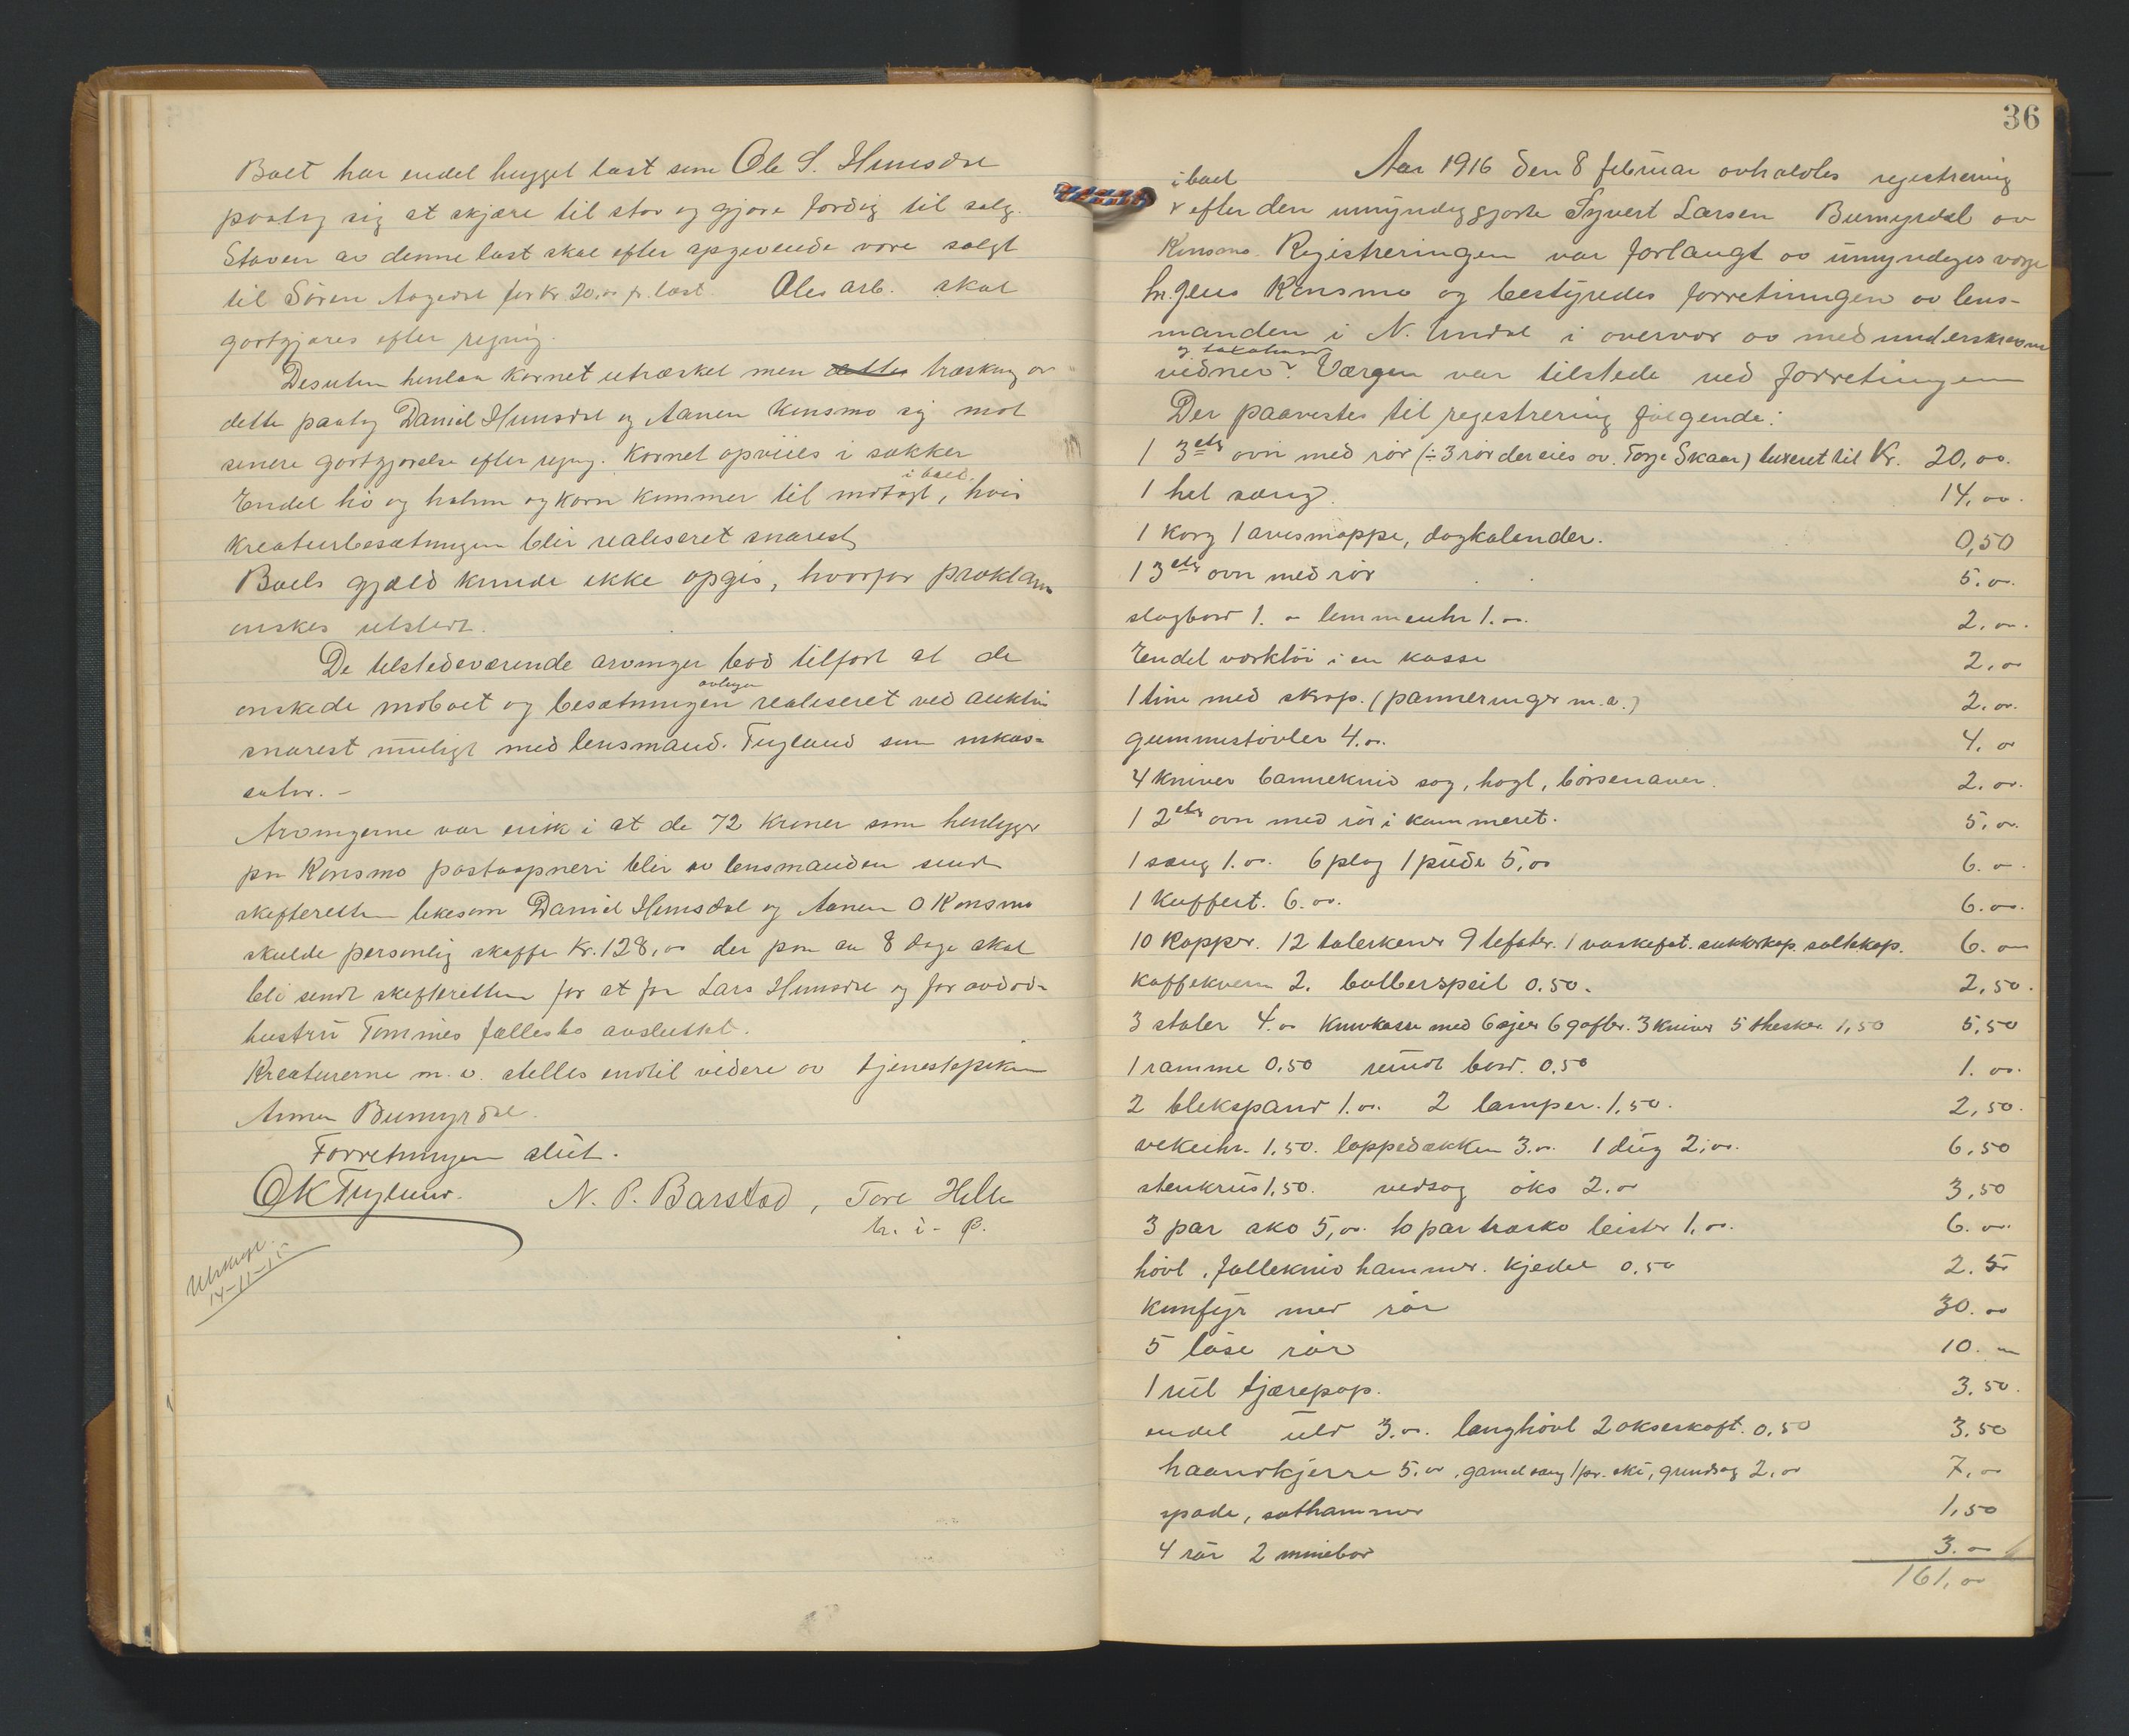 Boet har endel hugget last som Ole S. Hunsdal
paatog sig at skjære til stav og gjøre færdig til salg.
Staven av denne last skal efter opgivende være solgt
til Søren Aagedal for Kr. 20,00 pr. læst. Oles arb. skal
godtgjøres efter regning.
Desuten henlaa kornet utræsket men træskning av
dette paatog Daniel Hunsdal og Aanen Konsmo sig mot
senere godtgjørelse efter regng. Kornet opveies i sækker
i boet.
Endel hø og halm og korn kommer til indtægt, hvis
kreaturbesætningen blir realiseret snarest
Boets gjæld kunde ikke opgis, hvorfor proklam
ønskes utstedt.
De tilstedeværende arvinger bød tilført at de
avlingen
ønskede indboet og besætningen realiseret ved auktion
snarest muligt med lensmand. Tryland som inkas-
sator. -
Arvingerne var enik i at de 72 kroner som henligger
paa Konsmo postaapneri blir av lensmanden sendt
skifteretten likesom Daniel Hunsdal og Aanen O Konsmo
skulde personlig skaffe Kr. 128,00 der om 8 dage skal
bli sendt skifteretten for at faa Lars Hunsdal og for avdøde
hustru Tommines fællesbo avsluttet.
Kreaturerne m.v. stelles indtil videre av tjenestepiken
Anna Bumyrdal.
Forretningen slut.
OKTryland. N. P. Barstad, Tore Helle
m. i. P.
Utskrift.
14-11-15
36
Aar 1916 den 8 februar avholdtes registrering
i boet
efter den umyndiggjorte Syvert Larsen Bumyrdal av
Konsmo. Registreringen var forlangt av umyndiges verge
hr. Jens Konsmo og bestyredes forretningen av lens-
manden i N. Undal i overvær av medunderskrevne
og takstmænd
vidner. Værgen var tilstede ved forretningen
Der paavistes til registrering følgende:
1 3etg ovn med rør (÷ 3 rør der eies av Torje Skaar) taxeret til Kr. 20,00.
1 hel sæng. 14,00.
1 korg 1 avismappe, dagkalender. 0,50
1 3etg ovn med rør 5.00.
slagbord 1.00 lommeuhr 1.00. 2.00.
Endel værktøi i en kasse 2,00
1 tine med skrap. (panneringer m.v.) 2.00.
gummistøvler 4.00. 4.00
4 kniver bannekniv sag, hagl, børsenaver. 2.00.
1 2etg ovn med rør i kammeret. 5,00.
1 sæng 1.00. 6 plag 1 pude 5,00 6.00
1 kuffert. 6.00. 6.00.
10 Kopper. 12 talerkener 9 tefater. 1 vaskefat. sukkerkop. saltkop. 6.00
Kaffekvern 2. balberspeil 0.50. 2,50.
3 stoler 4.00 knivkasse med 6 sjeer 6 gafler. 3 kniver 5 thesker 1,50 5,50
1 ramme 0,50 rundt bord. 0.50 1.00.
2 blekspand 1.00. 2 lamper. 1,50. 2,50.
vekuhr. 1,50. lappedækken 3.00. 1 dug 2,00. 6,50
stenkrus 1,50. vedsag øks 2.00 3,50
3 par sko 5,00. 10 par træsko leister 1.00. 6.00.
høvl, falleknio hammer. kjedel 0.50 2.50
Komfyr med rør 30.00
5 løse rør 10.00
1 rul tjærepap. 3.50.
endel uld 3.00. langhøvl 2 økseskaft. 0.50 3.50
haandkjerre 5.00, gamel sæng 1 pr. ski, grindsag 2,00 7,00
spade, sethammer 1,50
4 rør 2 minebor 3.00
161,00